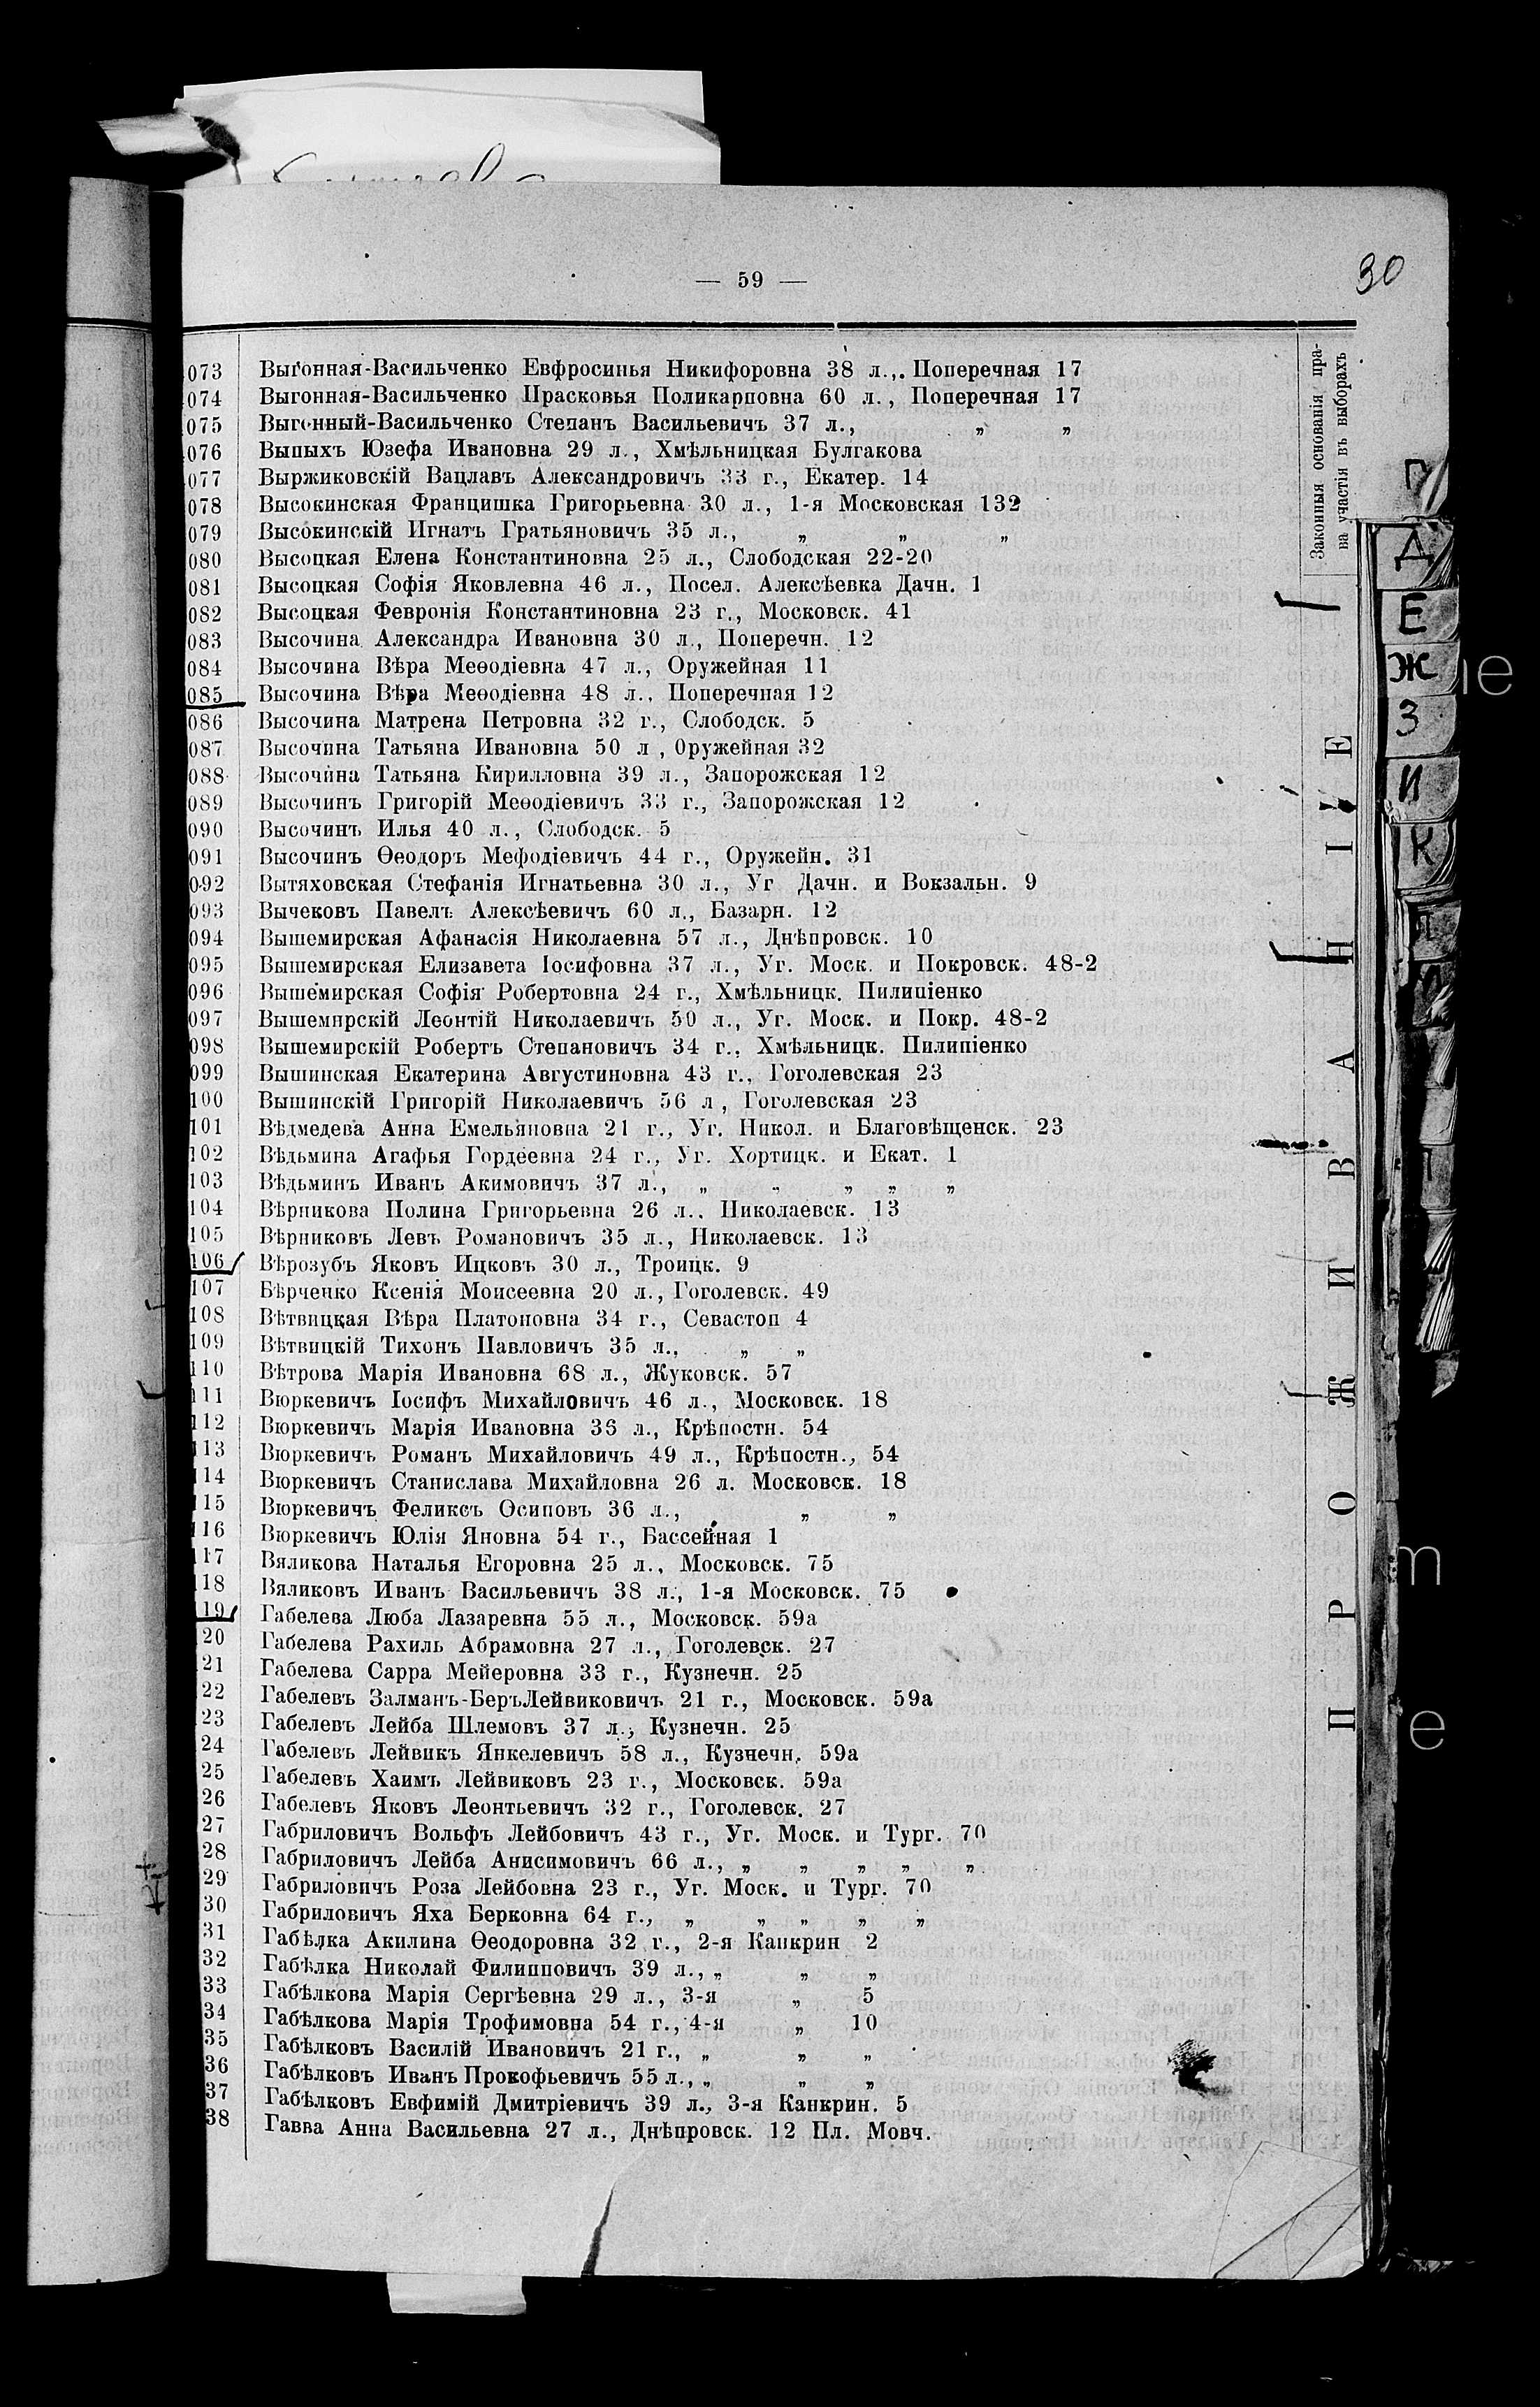 — 59 —
30
Законныя основанія пра-
ва участія въ выборахъ
ПРОЖИВАНІЕ
073 Выгонная-Васильченко Евфросинья Никифоровна 38 л.,. Поперечная 17
074 Выгонная-Васильченко Прасковья Поликарповна 60 л., Поперечная 17
075 Выгонный-Васильченко Степанъ Васильевичъ 37 л., „ „
076 Выпыхъ Юзефа Ивановна 29 л., Хмѣльницкая Булгакова
077 Выржиковскій Вацлавъ Александровичъ 33 г., Екатер. 14
078 Высокинская Францишка Григорьевна 30 л., 1-я Московская 132
079 Высокинскій Игнатъ Гратьяновичъ 35 л., „ „ „
080 Высоцкая Елена Константиновна 25 л., Слободская 22-20
081 Высоцкая Софія Яковлевна 46 л., Посел. Алексѣевка Дачн. 1
082 Высоцкая Февронія Константиновна 23 г., Московск. 41
083 Высочина Александра Ивановна 30 л., Поперечн. 12
084 Высочина Вѣра Меѳодіевна 47 л., Оружейная 11
085 Высочина Вѣра Меѳодіевна 48 л., Поперечная 12
086 Высочина Матрена Петровна 32 г., Слободск. 5
087 Высочина Татьяна Ивановна 50 л , Оружейная 32
088 Высочина Татьяна Кирилловна 39 л., Запорожская 12
089 Высочинъ Григорій Меѳодіевичъ 33 г., Запорожская 12
090 Высочинъ Илья 40 л., Слободск. 5
091 Высочинъ Ѳеодоръ Мефодіевичъ 44 г., Оружейн. 31
092 Вытяховская Стефанія Игнатьевна 30 л., Уг Дачн. и Вокзальн. 9
093 Вычековъ Павелъ Алексѣевичъ 60 л., Базарн. 12
094 Вышемирская Афанасія Николаевна 57 л., Днѣпровск. 10
095 Вышемирская Елизавета Іосифовна 37 л., Уг. Моск. и Покровск. 48-2
096 Вышемирская Софія Робертовна 24 г., Хмѣльницк. Пилипіенко
097 Вышемирскій Леонтій Николаевичъ 50 л., Уг. Моск. и Покр. 48-2
098 Вышемирскій Робертъ Степановичъ 34 г., Хмѣльницк. Пилипіенко
099 Вышинская Екатерина Августиновна 43 г., Гоголевская 23
100 Вышинскій Григорій Николаевичъ 56 л , Гоголевская 23
101 Вѣдмедева Анна Емельяновна 21 г., Уг. Никол. и Благовѣщенск. 23
102 Вѣдьмина Агафья Гордеевна 24 г., Уг. Хортицк. и Екат. 1
103 Вѣдьминъ Иванъ Акимовичъ 37 л., „ „ „ „ „
104 Вѣрникова Полина Григорьевна 26 л.. Николаевск. 13
105 Вѣрниковъ Левъ Романовичъ 35 л., Николаевск. 13
106 Вѣрозубъ Яковъ Ицковъ 30 л., Троицк. 9
107 Вѣрченко Ксенія Моисеевна 20 л., Гоголевск. 49
108 Вѣтвицкая Вѣра Платоновна 34 г., Севастоп 4
109 Вѣтвицкій Тихонъ Павловичъ 35 л., „ „
110 Вѣтрова Марія Ивановна 68 л., Жуковск. 57
111 Вюркевичъ Іосифъ Михайловичъ 46 л., Московск. 18
112 Вюркевичъ Марія Ивановна 36 л., Крѣпостн. 54
113 Вюркевичъ Романъ Михайловичъ 49 л., Крѣпостн., 54
114 Вюркевичъ Станислава Михайловна 26 л. Московск. 18
115 Вюркевичъ Феликсъ Осиповъ 36 л., „ „
116 Вюркевичъ Юлія Яновна 54 г., Бассейная 1
117 Вяликова Наталья Егоровна 25 л., Московск. 75
118 Вяликовъ Иванъ Васильевичъ 38 л., 1-я Московск. 75
119 Габелева Люба Лазаревна 55 л., Московск. 59а
20 Габелева Рахиль Абрамовна 27 л., Гоголевск. 27
21 Габелева Сарра Мейеровна 33 г., Кузнечн. 25
22 Габелевъ Залманъ-БеръЛейвиковичъ 21 г., Московск. 59а
23 Габелевъ Лейба Шлемовъ 37 л., Кузнечн. 25
24 Габелевъ Лейвикъ Янкелевичъ 58 л., Кузнечн. 59а
25 Габелевъ Хаимъ Лейвиковъ 23 г., Московск. 59а
26 Габелевъ Яковъ Леонтьевичъ 32 г., Гоголевск. 27
27 Габриловичъ Вольфъ Лейбовичъ 43 г., Уг. Моск. и Тург. 70
28 Габриловичъ Лейба Анисимовичъ 66 л., „ „ „ „ „
29 Габриловичъ Роза Лейбовна 23 г., Уг. Моск. и Тург. 70
30 Габриловичъ Яха Берковна 64 г., „ „ „ „ „
31 Габѣлка Акилина Ѳеодоровна 32 г., 2-я Канкрин 2
32 Габѣлка Николай Филипповичъ 39 л., „ „ „
33 Габѣлкова Марія Сергѣевна 29 л., 3-я „ 5
34 Габѣлкова Марія Трофимовна 54 г., 4-я „ 10
35 Габѣлковъ Василій Ивановичъ 21 г., „ „ „
36 Габѣлковъ Иванъ Прокофьевичъ 55 л., „ „ „
37 Габѣлковъ Евфимій Дмитріевичъ 39 л., 3-я Канкрин. 5
38 Гавва Анна Васильевна 27 л., Днѣпровск. 12 Пл. Мовч.
Д
Е
Ж
З
И
К